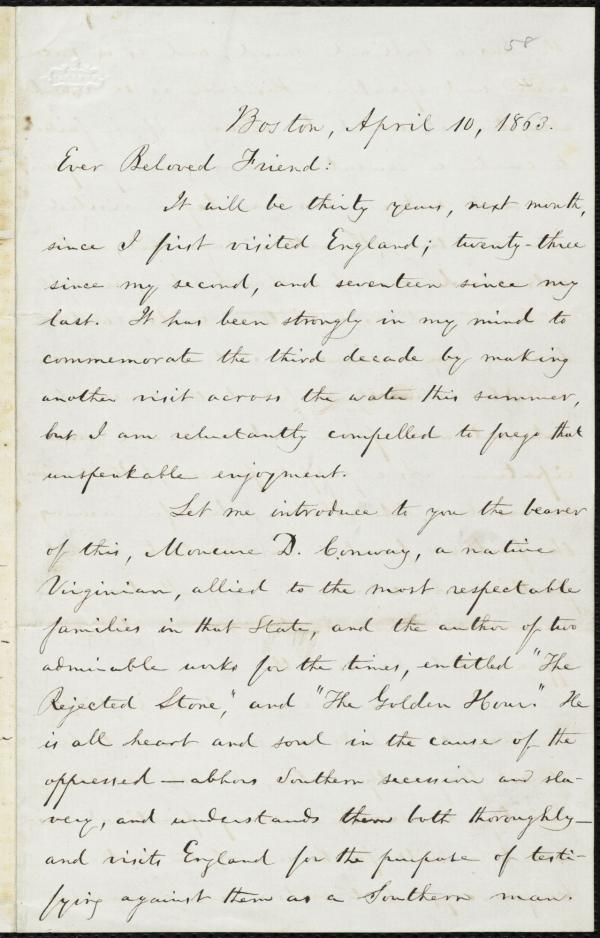 58
Boston, April 10, 1863.
Ever Beloved Friend:
It will be thirty years, next month,
since I first visited England; twenty-three
since my second, and seventeen since my
last. It has been strongly in my mind to
commemorate the third decade by making
another visit across the water this summer,
but I am reluctantly compelled to forego that
unspeakable enjoyment.
Let me introduce to you the bearer
of this, Moncure D. Conway, a native
Virginian, allied to the most respectable
families in that State, and the author of two
admirable works for the times, entitled "The
Rejected Stone," and "The Golden Hour." He
is all heart and soul in the cause of the
oppressed—abhors Southern secession and sla-
very, and understands them both thoroughly—
and visits England for the purpose of testi-
fying against them as a Southern man.